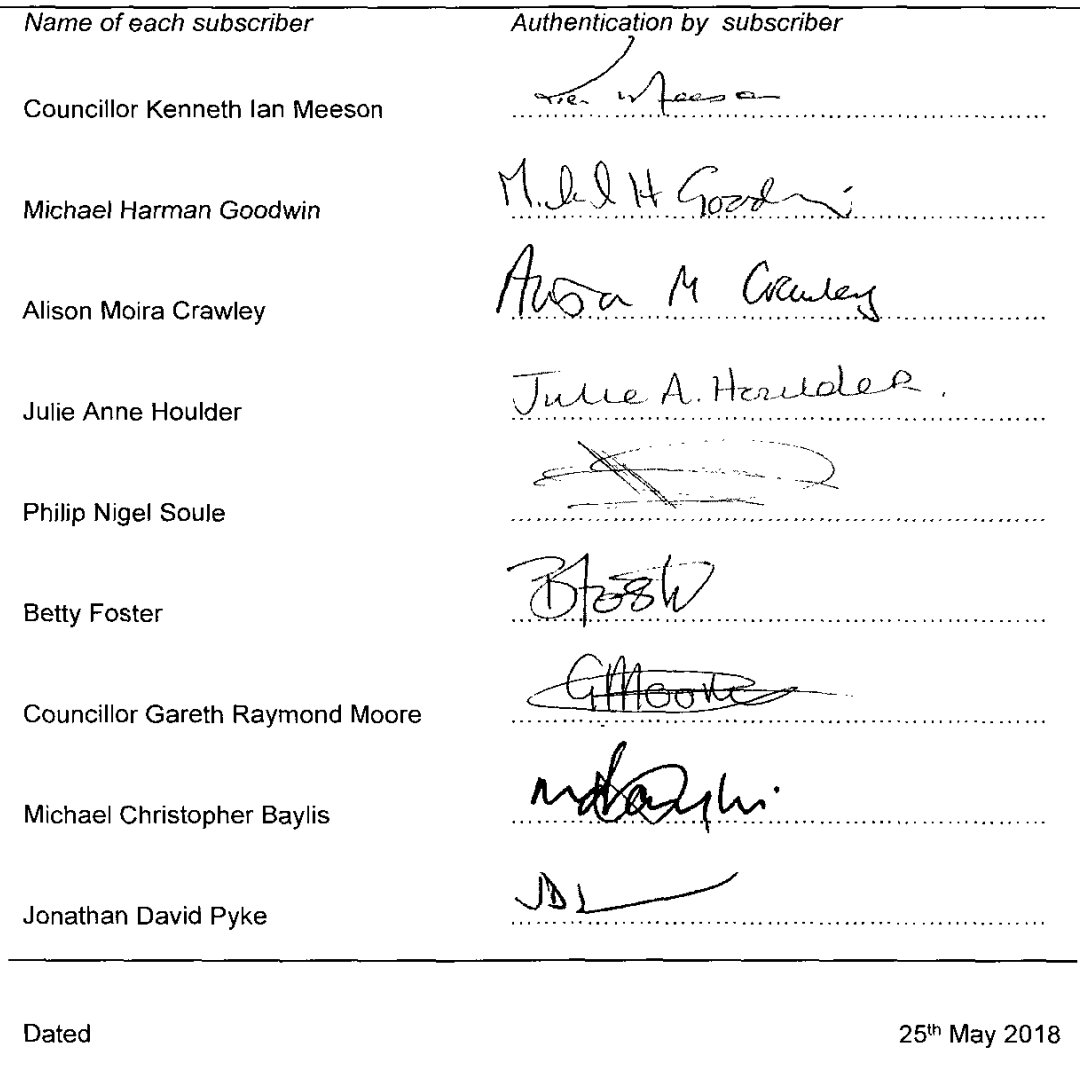 Name of each subscriber Authentication by subscriber
Councillor Kenneth Ian Meeson Ken Meeson
Michael Harman Goodwin Michael H Goodwin
Alison Moira Crawley Alison M Crawley
Julie Anne Houlder Julie A. Houlder.
Philip Nigel Soule
Betty Foster B Foster
Councillor Gareth Raymond Moore G Moore
Michael Christopher Baylis
Jonathan David Pyke
Dated 25th May 2018